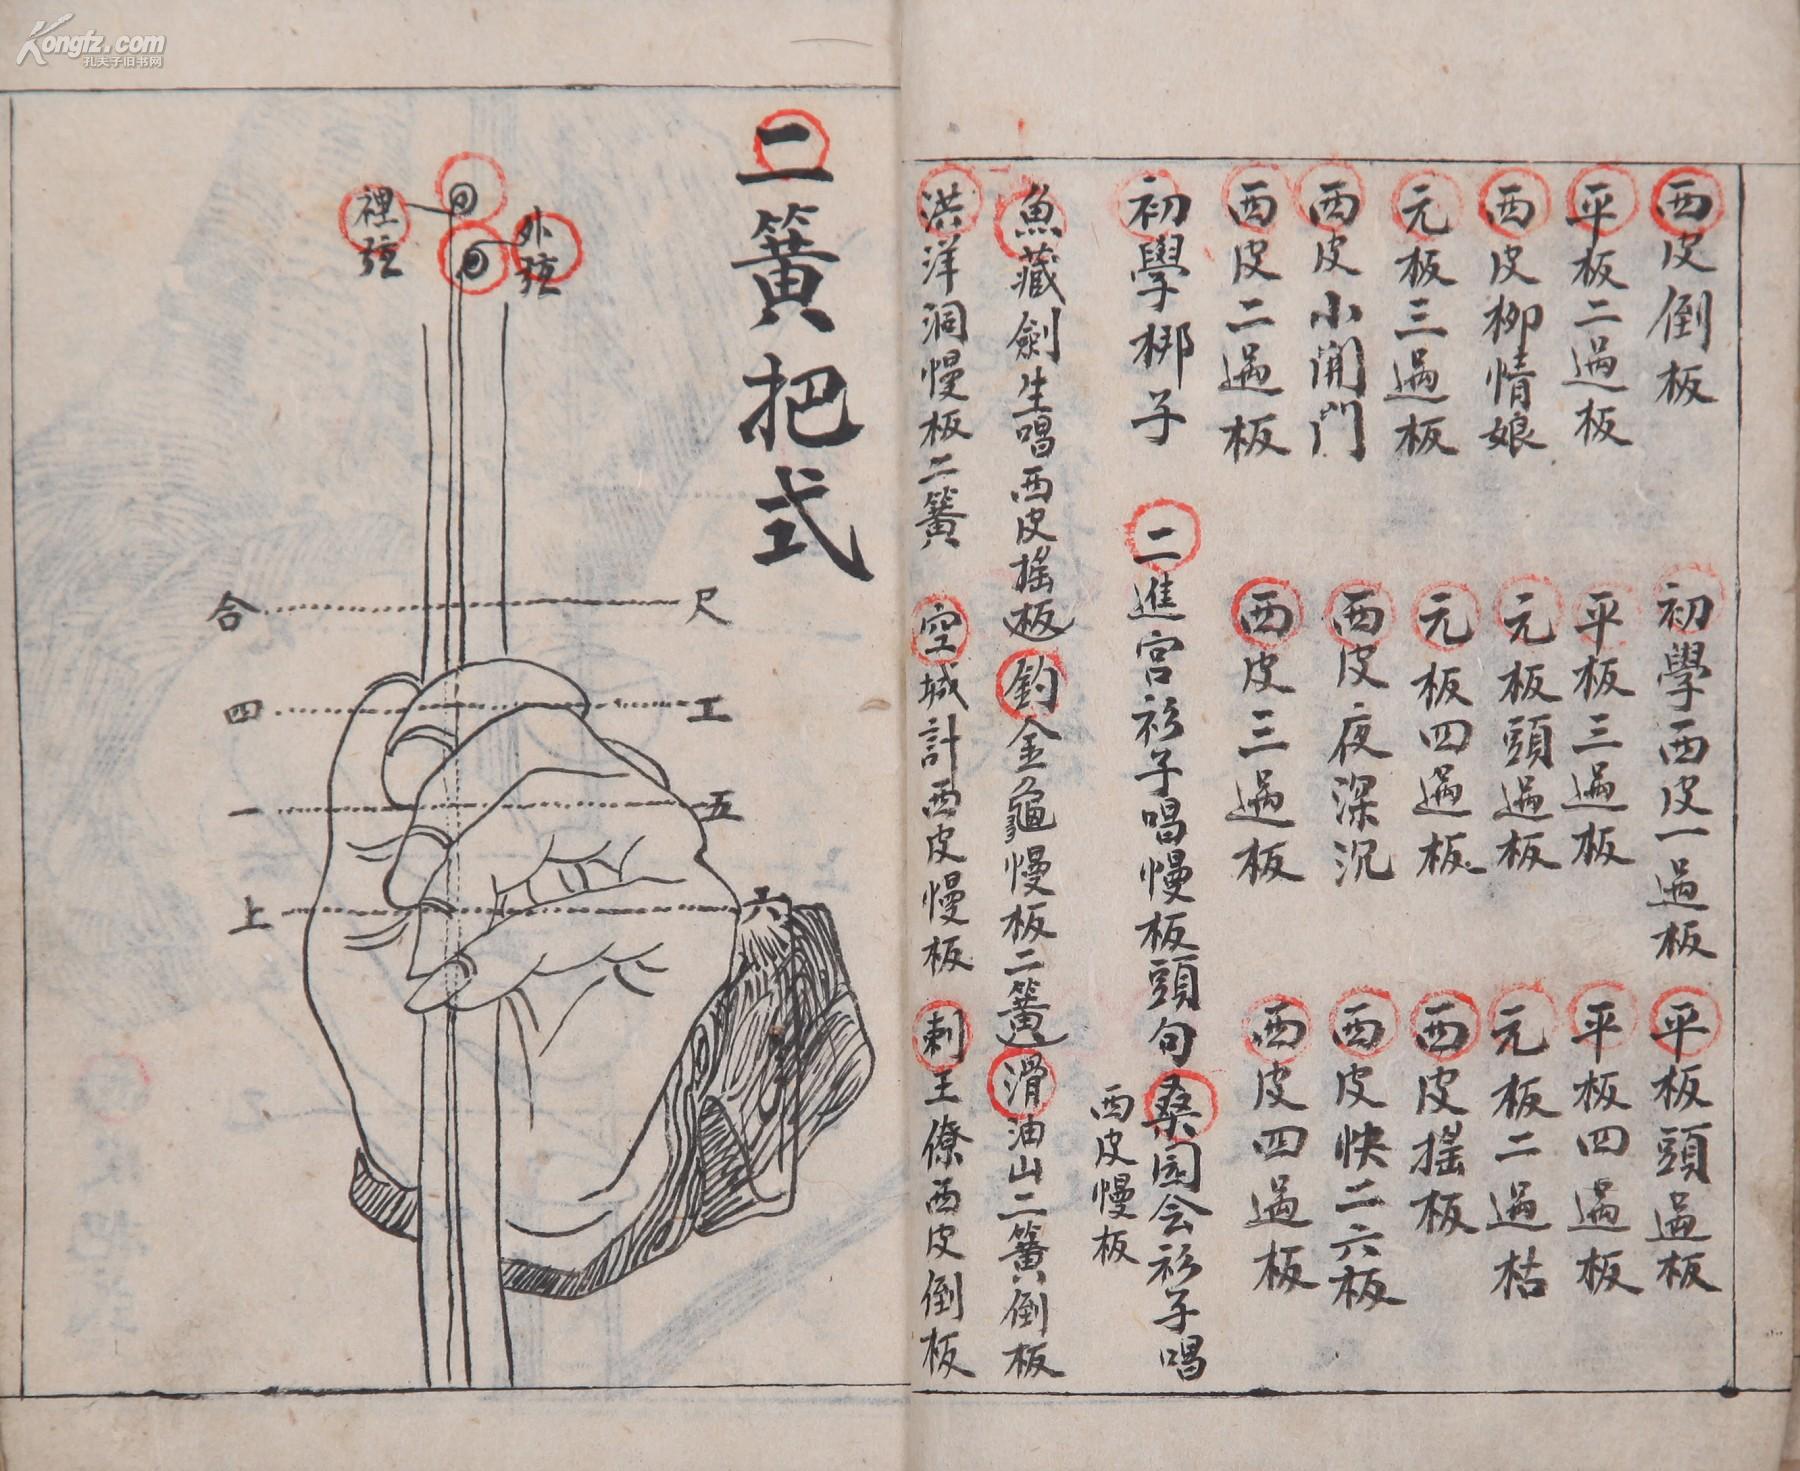 西皮倒板
初學西皮一過板
平板頭過板
平板二過板
平板三過板
平板四過板
西皮柳情娘
元板頭過板
元板二過枯
元板三過板
元板四過板
西皮搖板
西皮小開門
西皮夜深沉
西皮快二六板
西皮二過板
西皮三過板
西皮四過板
初學梆子
二進宮衫子唱慢板頭句
桑园会衫子唱
西皮慢板
魚藏劍生唱西皮搖板
釣金龜慢板二簧
滑油山二簧倒板
洪洋洞慢板二簧
空城計西皮慢板
刺王僚西皮倒板
二簧把式
外弦
裡弦
尺
合
工
四
五
一
六
上
Kongfz.com
孔夫子旧书网